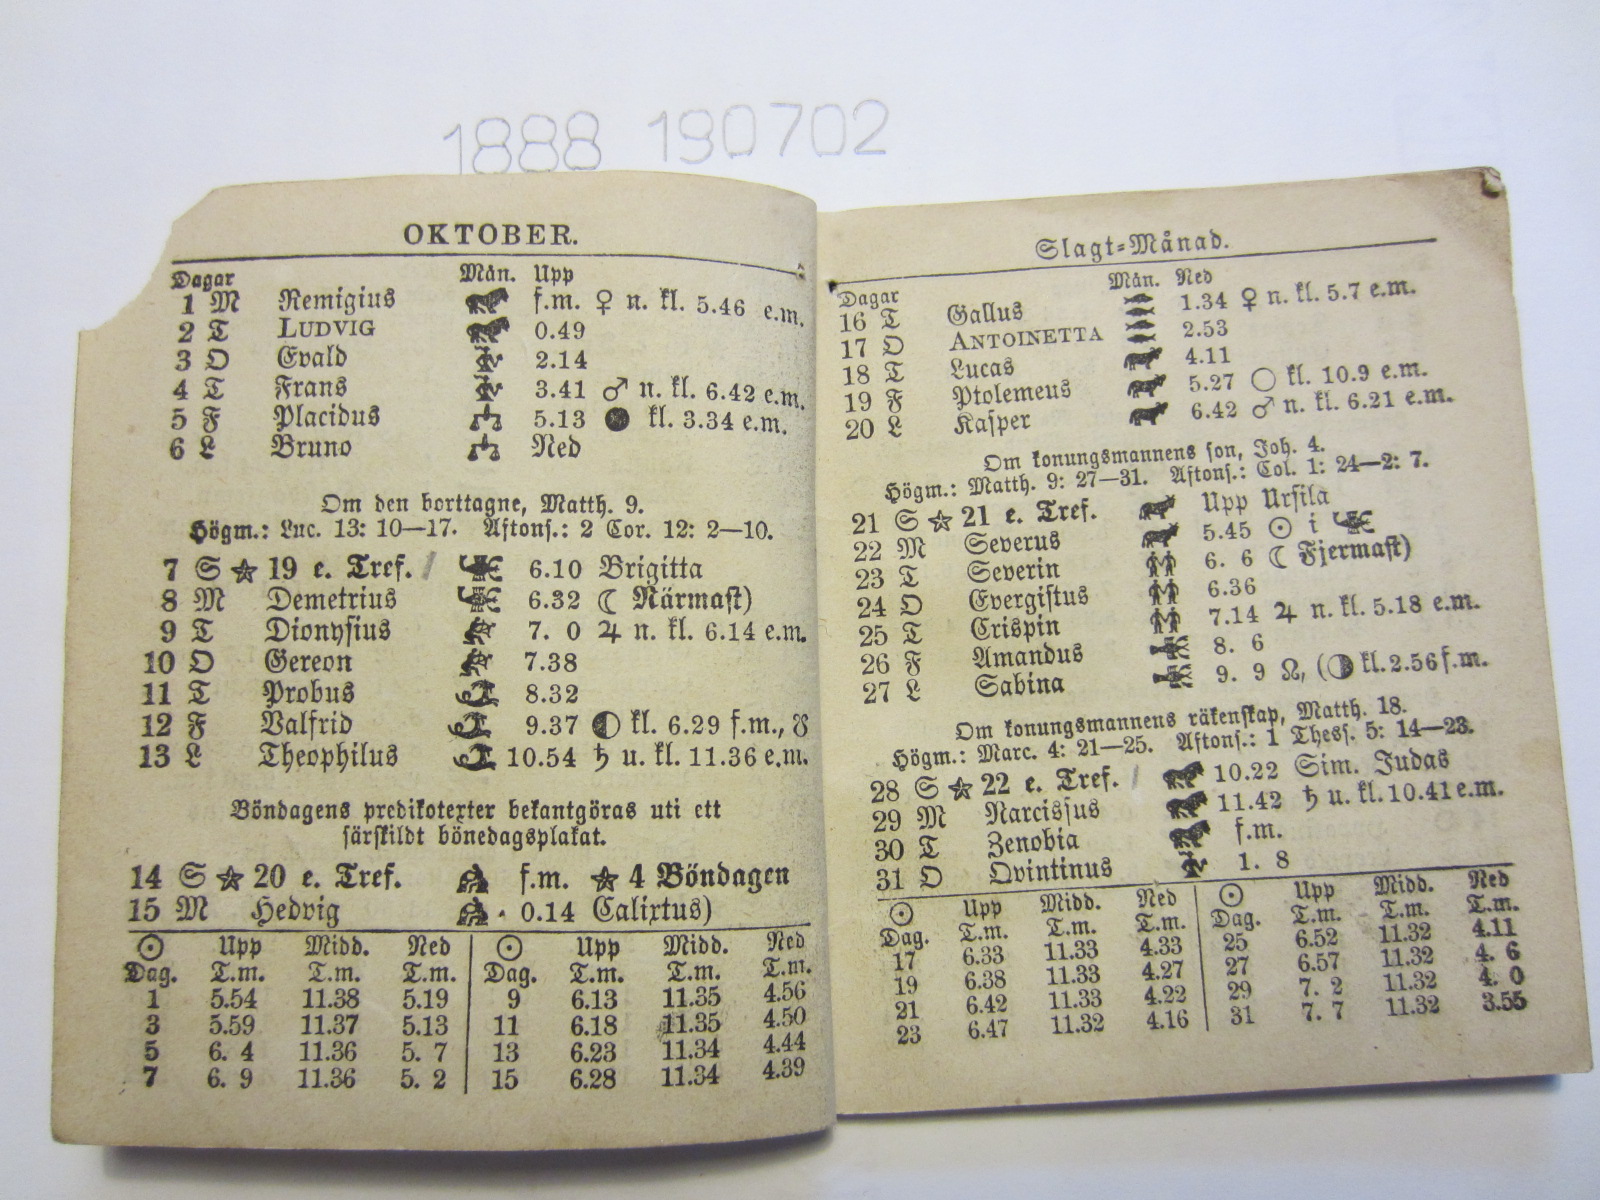 1888 190702
OKTOBER.
Dagar Mån. Upp
1 M Remigius f.m. ♀ n. kl. 5.46 e.m.
2 T LUDVIG 0.49
3 O Evald 2.14
4 T Frans 3.41 ♂ n. kl. 6.42 e.m.
5 F Placidus 5.13 ● kl. 3.34 e.m.
6 L Bruno Ned
Om den borttagne, Matth. 9.
Högm.: Luc. 13: 10—17. Aftons.: 2 Cor. 12: 2—10.
7 S ☆ 19 e. Tref. 6.10 Brigitta
8 M Demetrius 6.32 ☾ Närmast)
9 T Dionysius 7. 0 ♃ n. kl. 6.14 e.m.
10 O Gereon 7.38
11 T Probus 8.32
12 F Valfrid 9.37 ◐ kl. 6.29 f.m., ☋
13 L Theophilus 10.54 ♄ u. kl. 11.36 e.m.
Böndagens predikotexter bekantgöras uti ett
särskildt bönedagsplakat.
14 S ☆ 20 e. Tref. f.m. ☆ 4 Böndagen
15 M Hedvig 0.14 Calixtus)
☉ Upp Midd. Ned ☉ Upp Midd. Ned
Dag. T.m. T.m. T.m. Dag. T.m. T.m. T.m.
1 5.54 11.38 5.19 9 6.13 11.35 4.56
3 5.59 11.37 5.13 11 6.18 11.35 4.50
5 6. 4 11.36 5. 7 13 6.23 11.34 4.44
7 6. 9 11.36 5. 2 15 6.28 11.34 4.39
Slagt-Månad.
Dagar Mån. Ned
16 T Gallus 1.34 ♀ n. kl. 5.7 e.m.
17 O ANTOINETTA 2.53
18 T Lucas 4.11
19 F Ptolemeus 5.27 ○ kl. 10.9 e.m.
20 L Kasper 6.42 ♂ n. kl. 6.21 e.m.
Om konungsmannens son, Joh. 4.
Högm.: Matth. 9: 27—31. Aftons.: Col. 1: 24—2: 7.
21 S ☆ 21 e. Tref. Upp Ursila
22 M Severus 5.45 ☉ i
23 T Severin 6. 6 ☾ Fjermast)
24 O Evergistus 6.36
25 T Crispin 7.14 ♃ n. kl. 5.18 e.m.
26 F Amandus 8. 6
27 L Sabina 9. 9 ☊, (◑ kl. 2.56 f.m.
Om konungsmannens räkenskap, Matth. 18.
Högm.: Marc. 4: 21—25. Aftons.: 1 Thess. 5: 14—23.
28 S ☆ 22 e. Tref. 10.22 Sim. Judas
29 M Narcissus 11.42 ♄ u. kl. 10.41 e.m.
30 T Zenobia f.m.
31 O Qvintinus 1. 8
☉ Upp Midd. Ned ☉ Upp Midd. Ned
Dag. T.m. T.m. T.m. Dag. T.m. T.m. T.m.
17 6.33 11.33 4.33 25 6.52 11.32 4.11
19 6.38 11.33 4.27 27 6.57 11.32 4. 6
21 6.42 11.33 4.22 29 7. 2 11.32 4. 0
23 6.47 11.32 4.16 31 7. 7 11.32 3.55